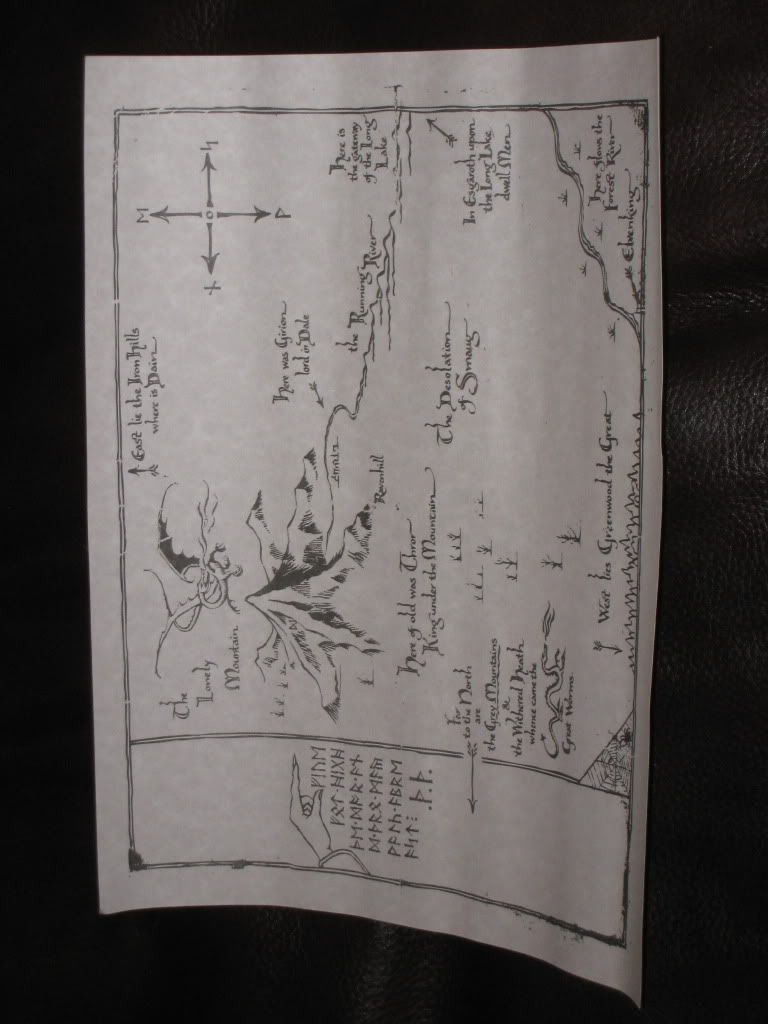 ᛖ
ᚾ
ᛋ
ᚹ
East lie the Iron Hills
where is Dain
The
Lonely
Mountain
Here was Girion
lord in Dale
Here is
the gateway
of the Long
Lake
the Running
River
Ravenhill
ᚠᛁᚢᛖ
ᚠᛟᛏ᛫ᚻᛁᚷᚻ
ᚦᛖ᛫ᛞᚩᚱ᛫ᚪᚾ
ᛞ᛫ᚦᚱᛟ᛫ᛗᚪᚣ
ᚹᚪᛚᚳ᛫ᚪᛒᚱᛖ
ᚪᛋᛏ᛬᛫ᚦ᛫ᚦ᛫
Here of old was Thror
King under the Mountain
The Desolation
of Smaug
In Esgaroth upon
the Long Lake
dwell Men
Far
to the North
are
the Grey Mountains
&
the Withered Heath
whence came the
Great Worms
West lies Greenwood the Great
Here flows the
Forest River
Elvenking